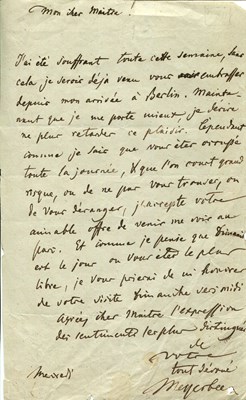 Mon cher Maître!
J'ai été souffrant toute cette semaine, sans
cela je serois déjà venu vous embrasser
depuis mon arrivée à Berlin. Mainte-
nant que je me porte mieux, je désire
ne plus retarder ce plaisir. Cependant
comme je sais que vous êtes occupé
toute la journée, & que l'on court grand
risque, ou de ne pas vous trouver, ou
de vous déranger, j'accepte votre
aimable offre de venir me voir au
pari. Et comme je pense que Dimanche
est le jour où vous êtes le plus
libre, je vous prierai de m'honorer
de votre visite Dimanche vers midi
Agréez cher Maître l'expression
des sentiments les plus distingués
de
votre
tout dévoué
Mercredi
Meyerbeer